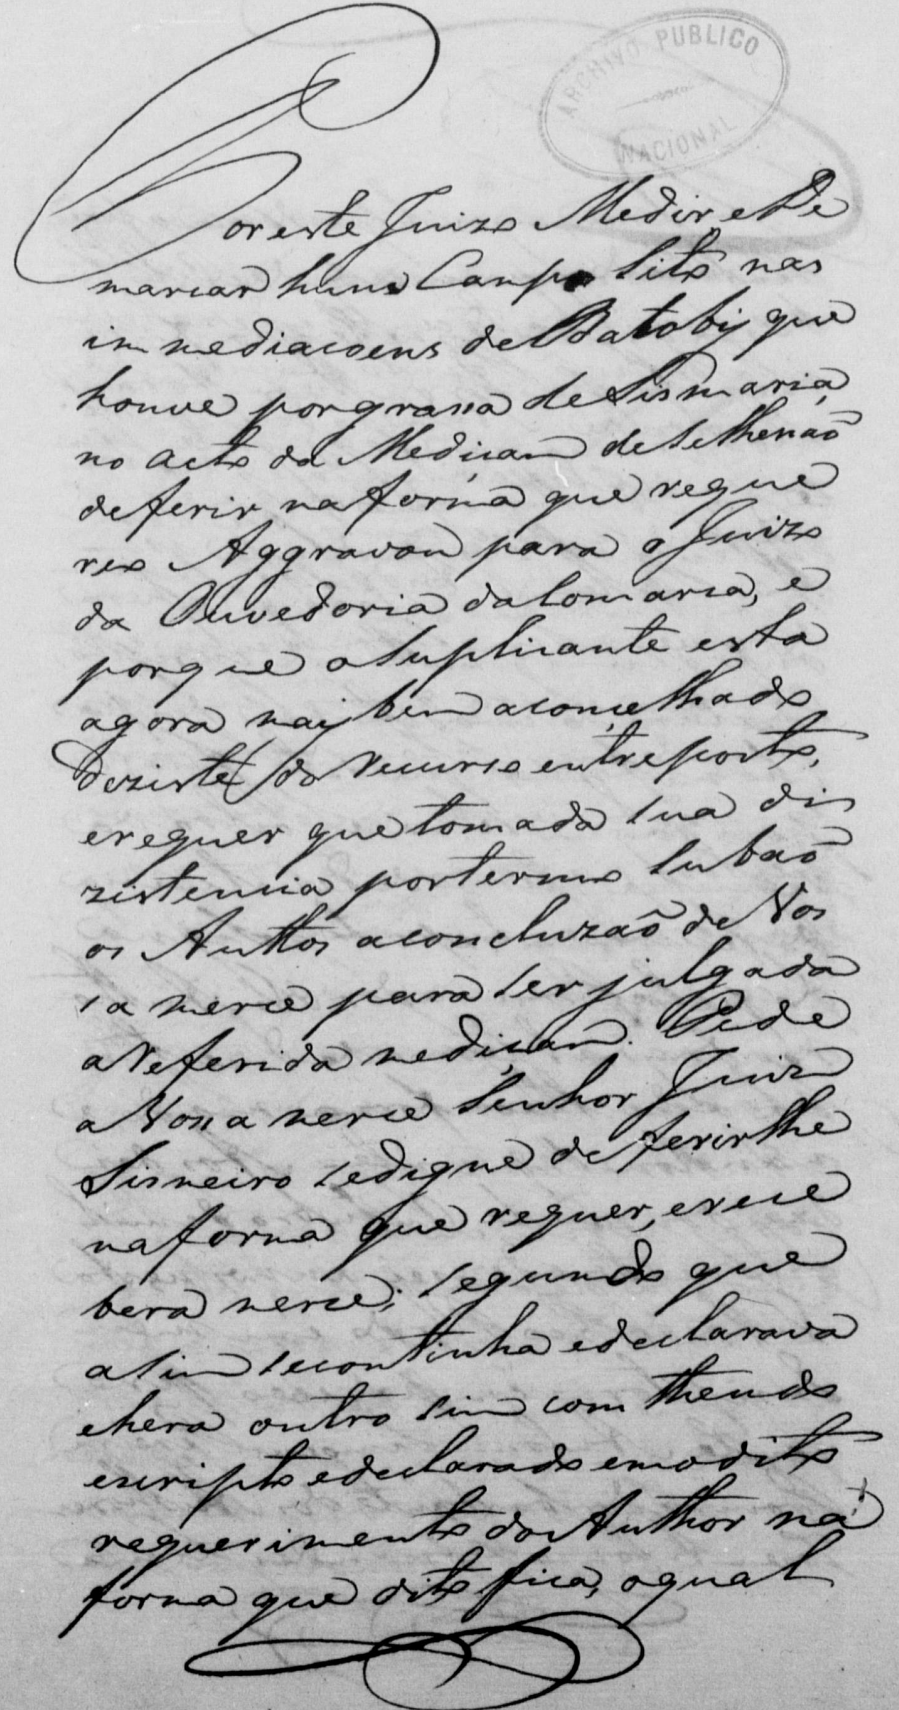 ARCHIVO PUBLICO
NACIONAL
Por este Juizo Medir, e De
marcar hum Campo sito nas
immediacoens de Batobij que
houve por grassa de Sismaria,
no acto da Medicam de se lhe não
deferir na forma que reque
reo Aggravou para o Juizo
da Ouvedoria da Comarca, e
porque o Suplicante esta
agora maij bem aconçelhado
dezirte do recurso entreposto,
e requer que tomada sua di
zistencia por termo subaõ
os Authos a concluzaõ de Vos
sa merce para ser julgada
a Referida mediçam. Pede
a Vossa merce Senhor Juiz
Sismeiro se digne deferirlhe
na forma que requer, e rece
bera merce; segundo que
asim se continha e declarava
e hera outro sim com theudo
escripto e declarado em o dito
requerimento do Author na
forma que dito fica, o qual